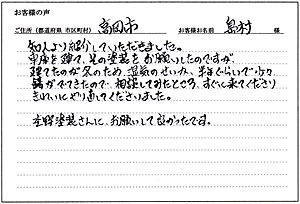 お客様の声
ご住所（都道府県 市区町村） 高岡市 お客様お名前 島村 様
知人より紹介していただきました。
車庫を建て、その塗装をお願いしたのですが、
建てたのが冬のため、湿気のせいか、半年ぐらいで少々
錆がでてきたので、相談してみたところ、すぐに来てくださり
きれいにやり直してくださいました。
塗装さんに、お願いして良かったです。